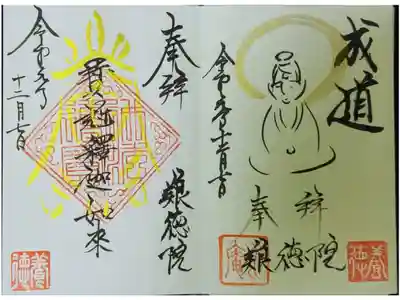 成道
令和元年十二月七日
奉拝
養徳院
養徳
奉拝
養徳院
釋迦如来
令和元年
十二月七日
養徳